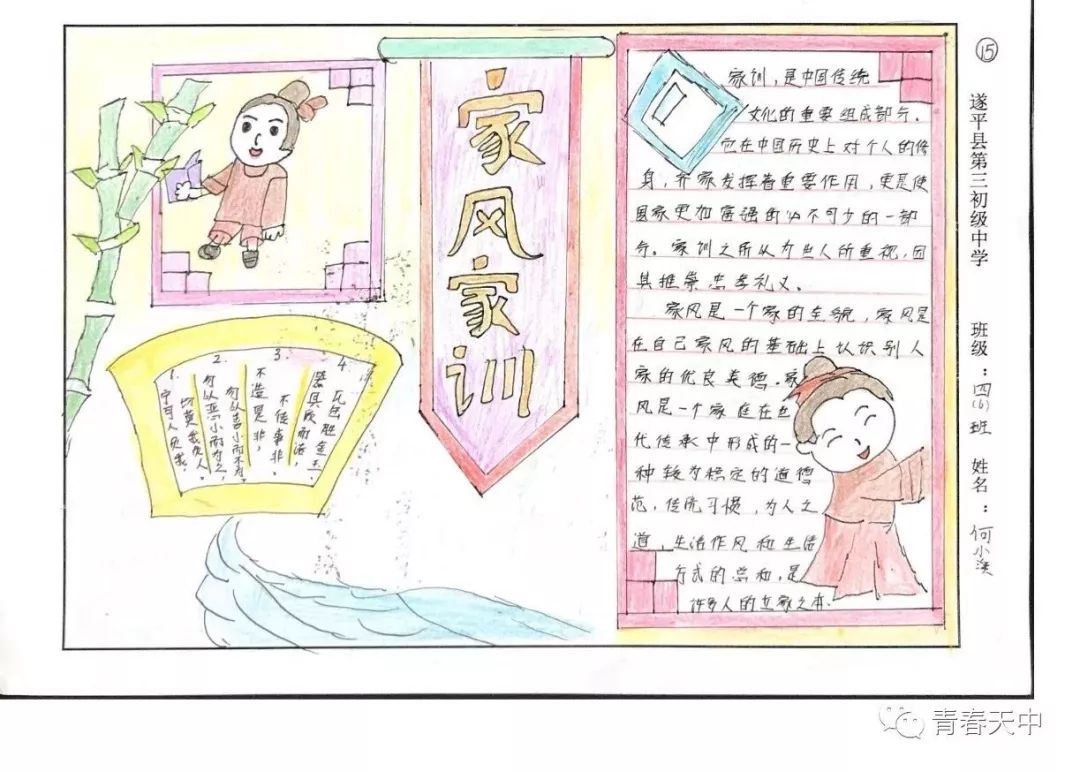 家风家训
1.
宁可人负我,
切莫我负人。
2.
勿以恶小而为之,
勿以善小而不为。
3.
不造是非,
不传事非。
4.
器具质而洁,
瓦缶胜金玉.
家训,是中国传统
文化的重要组成部分.
它在中国历史上对个人的修
身,齐家发挥着重要作用,更是使
国家更加富强的必不可少的一部
分。家训之所以为世人所重视,因
其推崇忠孝礼义。
家风是一个家的全貌,家风是
在自己家风的基础上认识别人
家的优良美德.家
风是一个家庭在世
代传承中形成的一
种较为稳定的道德
范,传统习惯,为人之
道,生活作风和生活
方式的总和,是
许多人的立家之本.
⑮
遂平县第三初级中学 班级:四(6)班 姓名:何小溪
青春天中